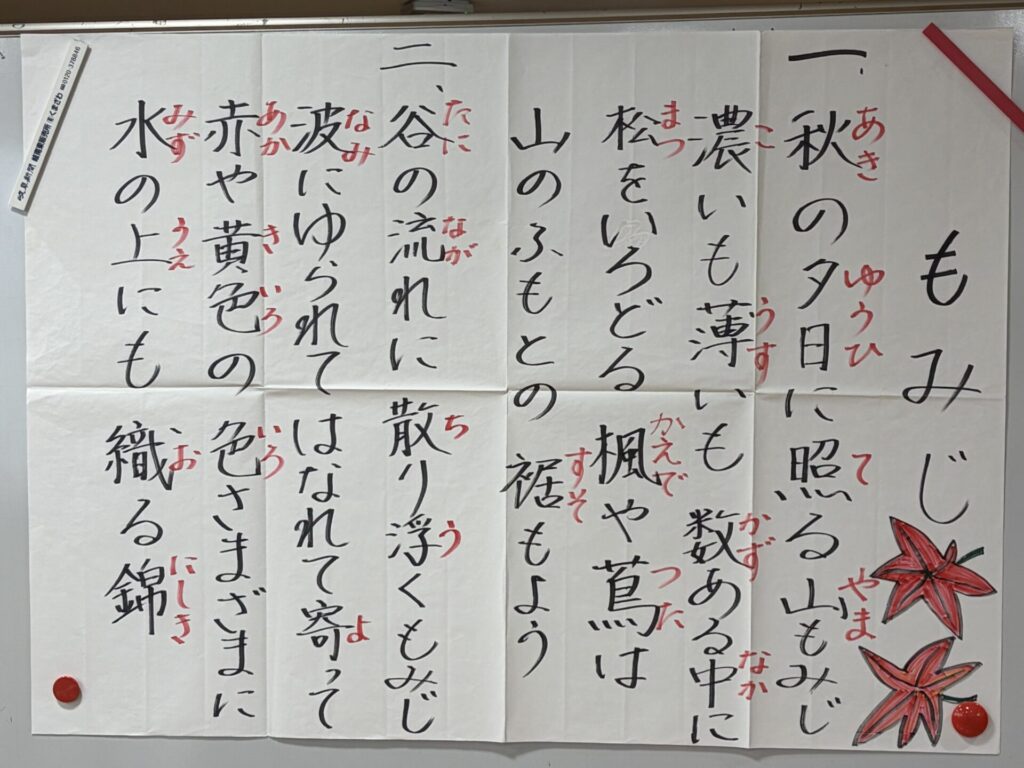 もみじ
あき ゆうひ て やま
一、秋の夕日に照る山もみじ
こ うす かず なか
濃いも薄いも 数ある中に
まつ かえで つた
松をいろどる 楓や蔦は
すそ
山のふもとの 裾もよう
たに なが ち う
二、谷の流れに 散り浮くもみじ
なみ よ
波にゆられて はなれて寄って
あか き いろ いろ
赤や黄色の 色さまざまに
みず うえ お にしき
水の上にも 織る錦
岐阜新聞